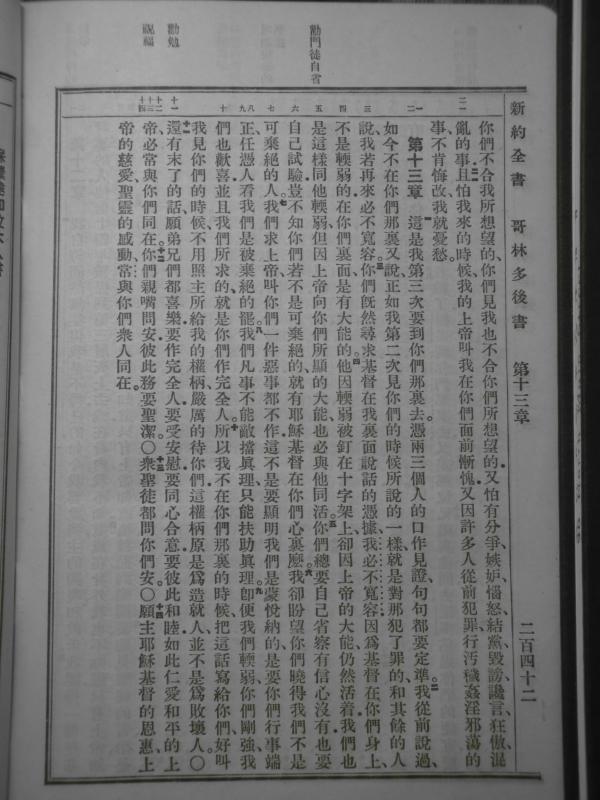 新約全書 哥林多後書 第十三章 二百四十二
你們不合我所想望的、你們見我也不合你們所想望的、又怕有分爭嫉妒惱怒結黨毀謗讒言狂傲混
亂的事、且怕我來的時候、我的上帝叫我在你們面前慚愧、又因許多人從前犯罪、行汚穢姦淫邪蕩的
事、不肯悔改、我就憂愁。
第十三章 一這是我第三次要到你們那裏去。憑兩三個人的口作見證、句句都要定準。二我從前說過、
如今不在你們那裏又說、正如我第二次見你們的時候所說的一樣、就是對那犯了罪的和其餘的人
說、我若再來必不寬容。三你們旣然尋求基督在我裏面說話的憑據、我必不寬容、因爲基督在你們身上、
不是輭弱的、在你們裏面是有大能的。四他因輭弱被釘在十字架上、卻因上帝的大能仍然活着、我們也
是這樣同他輭弱、但因上帝向你們所顯的大能、也必與他同活。五你們總要自己省察有信心沒有、也要
自己試驗、豈不知你們若不是可棄絕的、就有耶穌基督在你們心裏麽。六我卻盼望你們曉得我們不是
可棄絕的人。七我們求上帝叫你們一件惡事都不作、這不是要顯明我們是蒙悅納的、是要你們行事端
正、任憑人看我們是被棄絕的罷。八我們凡事不能敵擋眞理、只能扶助眞理。九卽便我們輭弱、你們剛強、我
們也歡喜、並且我們所求的、就是你們作完全人。十所以我不在你們那裏的時候、把這話寫給你們、好叫
我見你們的時候、不用照主所給我的權柄、嚴厲的待你們、這權柄原是爲造就人、並不是爲敗壞人。〇
十一還有末了的話、願弟兄們都喜樂、要作完全人、要受安慰、要同心合意、要彼此和睦、如此仁愛和平的上
帝、必常與你們同在。十二你們親嘴問安、彼此務要聖潔。〇十三衆聖徒都問你們安。〇十四願主耶穌基督的恩惠、上
帝的慈愛、聖靈的感動、常與你們衆人同在。
勸門徒自省
勸勉
祝福